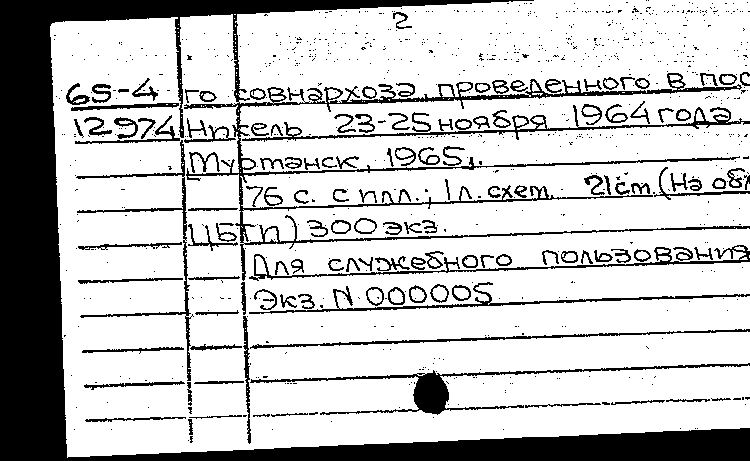 2
65-4 го совнархоза, проведенного в пос
12974 Никель 23-25 ноября 1964 года.
Мурманск, 1965.
76 с. с илл.; 1 л. схем. 21 см. (На обл
ЦБТИ) 300 экз.
Для служебного пользования
Экз. N 000005